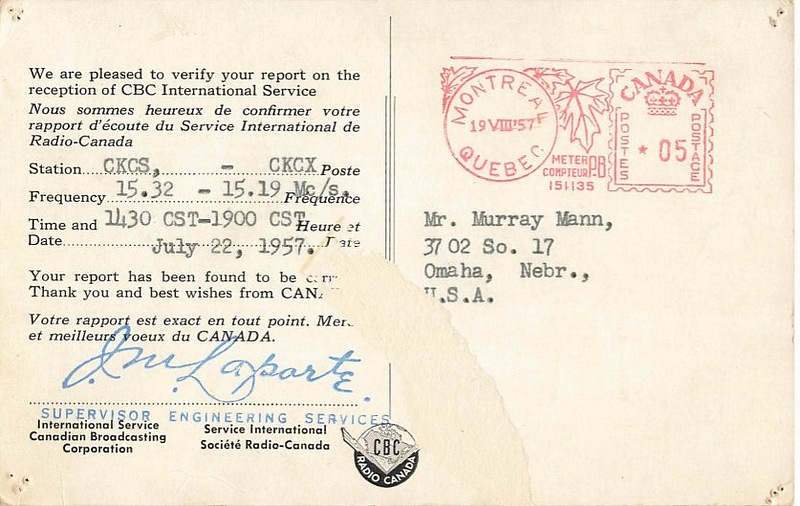 We are pleased to verify your report on the
reception of CBC International Service
Nous sommes heureux de confirmer votre
rapport d'écoute du Service International de
Radio-Canada
Station CKCS, - CKCX Poste
Frequency 15.32 - 15.19 Mc/s. Fréquence
Time and 1430 CST-1900 CST Heure et
Date July 22, 1957. Date
Your report has been found to be
Thank you and best wishes from
Votre rapport est exact en tout point.
et meilleurs voeux du CANADA.
J.M. Laporte.
SUPERVISOR ENGINEERING SERVICES
International Service
Canadian Broadcasting
Corporation
Service International
Société Radio-Canada
CBC
RADIO CANADA
MONTREAL
19 VIII '57
QUEBEC
METER
COMPTEUR
PB
151135
CANADA
POSTES
* 05
POSTAGE
Mr. Murray Mann,
3702 So. 17
Omaha, Nebr.,
U.S.A.